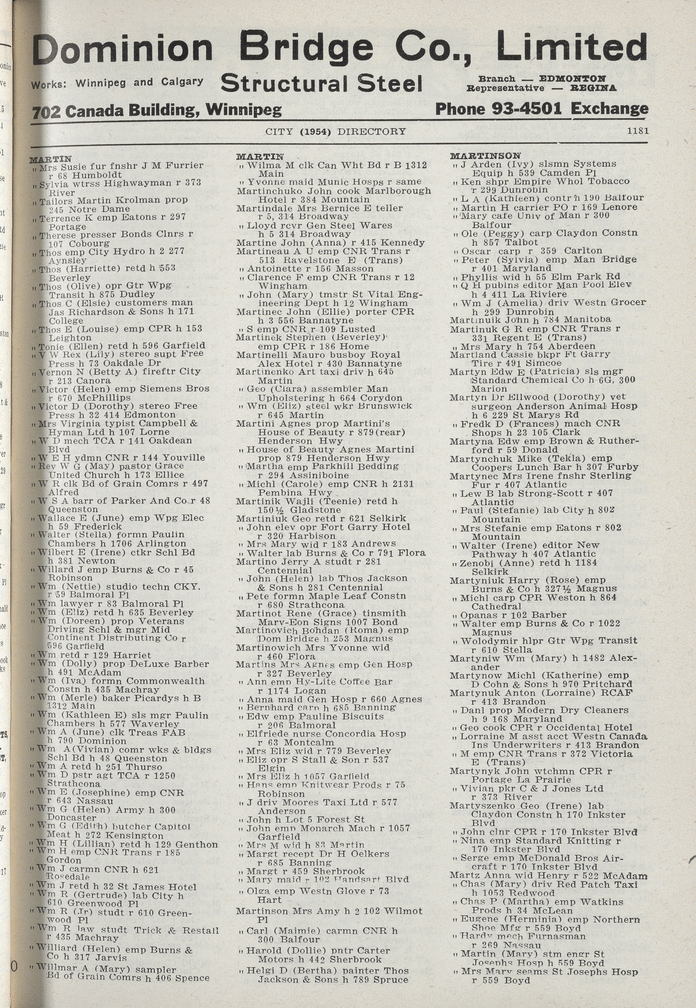 Dominion Bridge Co., Limited
Works: Winnipeg and Calgary
Structural Steel
Branch — EDMONTON
Representative — REGINA
702 Canada Building, Winnipeg
Phone 93-4501 Exchange
CITY (1954) DIRECTORY
1181
MARTIN
" Mrs Susie fur fnshr J M Furrier
r 68 Humboldt
" Sylvia wtrss Highwayman r 373
River
" Tailors Martin Krolman prop
245 Notre Dame
" Terrence K emp Eatons r 297
Portage
" Therese presser Bonds Clnrs r
107 Cobourg
" Thos emp City Hydro h 2 277
Aynsley
" Thos (Harriette) retd h 553
Beverley
" Thos (Olive) opr Gtr Wpg
Transit h 875 Dudley
" Thos C (Elsie) customers man
Jas Richardson & Sons h 171
College
" Thos E (Louise) emp CPR h 153
Leighton
" Tonie (Ellen) retd h 596 Garfield
" V W Rex (Lily) stereo supt Free
Press h 73 Oakdale Dr
" Vernon N (Betty A) fireftr City
r 213 Canora
" Victor (Helen) emp Siemens Bros
r 670 McPhillips
" Victor D (Dorothy) stereo Free
Press h 32 414 Edmonton
" Mrs Virginia typist Campbell &
Hyman Ltd h 107 Lorne
" W D mech TCA r 141 Oakdean
Blvd
" W E H ydmn CNR r 144 Youville
" Rev W G (May) pastor Grace
United Church h 173 Ellice
" W R clk Bd of Grain Comrs r 497
Alfred
" W S A barr of Parker And Co r 48
Queenston
" Wallace E (June) emp Wpg Elec
h 59 Frederick
" Walter (Stella) formn Paulin
Chambers h 1706 Arlington
" Wilbert E (Irene) ctkr Schl Bd
h 381 Newton
" Willard J emp Burns & Co r 45
Robinson
" Wm (Nettie) studio techn CKY.
r 59 Balmoral Pl
" Wm lawyer r 83 Balmoral Pl
" Wm (Eliz) retd h 635 Beverley
" Wm (Doreen) prop Veterans
Driving Schl & mgr Mid
Continent Distributing Co r
596 Garfield
" Wm retd r 129 Harriet
" Wm (Dolly) prop DeLuxe Barber
h 491 McAdam
" Wm (Iva) formn Commonwealth
Constn h 435 Machray
" Wm (Merle) baker Picardys h B
1312 Main
" Wm (Kathleen E) sls mgr Paulin
Chambers h 577 Waverley
" Wm A (June) clk Treas FAB
h 790 Dominion
" Wm A(Vivian) comr wks & bldgs
Schl Bd h 48 Queenston
" Wm A retd h 251 Thurso
" Wm D pstr agt TCA r 1250
Strathcona
" Wm E (Josephine) emp CNR
r 643 Nassau
" Wm G (Helen) Army h 300
Doncaster
" Wm G (Edith) butcher Capitol
Meat h 272 Kensington
" Wm H (Lillian) retd h 129 Genthon
" Wm H emp CNR Trans r 185
Gordon
" Wm J carmn CNR h 621
Rosedale
" Wm J retd h 32 St James Hotel
" Wm R (Gertrude) lab City h
610 Greenwood Pl
" Wm R (Jr) studt r 610 Green-
wood Pl
" Wm R law studt Trick & Restall
r 435 Machray
" Williard (Helen) emp Burns &
Co h 317 Jarvis
" Willmar A (Mary) sampler
Bd of Grain Comrs h 406 Spence
MARTIN
" Wilma M clk Can Wht Bd r B 1312
Main
" Yvonne maid Munic Hosps r same
Martinchuko John cook Marlborough
Hotel r 384 Mountain
Martindale Mrs Bernice E teller
r 5, 314 Broadway
" Lloyd rcvr Gen Steel Wares
h 5 314 Broadway
Martine John (Anna) r 415 Kennedy
Martineau A U emp CNR Trans r
513 Ravelstone E (Trans)
" Antoinette r 156 Masson
" Clarence F emp CNR Trans r 12
Wingham
" John (Mary) tmstr St Vital Eng-
ineering Dept h 12 Wingham
Martinec John (Ellie) porter CPR
h 3 556 Bannatyne
" S emp CNR r 109 Lusted
Martinek Stephen (Beverley)
emp CPR r 186 Home
Martinelli Mauro busboy Royal
Alex Hotel r 430 Bannatyne
Martinenko Art taxi driv h 645
Martin
" Geo (Clara) assembler Man
Upholstering h 664 Corydon
" Wm (Eliz) steel wkr Brunswick
r 645 Martin
Martini Agnes prop Martini's
House of Beauty r 879(rear)
Henderson Hwy
" House of Beauty Agnes Martini
prop 879 Henderson Hwy
" Martha emp Parkhill Bedding
r 294 Assiniboine
" Michl (Carole) emp CNR h 2131
Pembina Hwy
Martinik Wajli (Teenie) retd h
150½ Gladstone
Martiniuk Geo retd r 621 Selkirk
" John elev opr Fort Garry Hotel
r 320 Harbison
" Mrs Mary wid r 183 Andrews
" Walter lab Burns & Co r 791 Flora
Martino Jerry A studt r 281
Centennial
" John (Helen) lab Thos Jackson
& Sons h 281 Centennial
" Pete formn Maple Leaf Constn
r 680 Strathcona
Martinot Rene (Grace) tinsmith
Marv-Eon Signs 1007 Bond
Martinovich Bohdan (Roma) emp
Dom Bridge h 253 Magnus
Martinowich Mrs Yvonne wid
r 460 Flora
Martins Mrs Agnes emp Gen Hosp
r 327 Beverley
" Ann emp Hy-Lite Coffee Bar
r 1174 Logan
" Anna maid Gen Hosp r 660 Agnes
" Bernhard carp h 685 Banning
" Edw emp Pauline Biscuits
r 206 Balmoral
" Elfriede nurse Concordia Hosp
r 63 Montcalm
" Mrs Eliz wid r 779 Beverley
" Eliz opr S Stall & Son r 537
Elgin
" Mrs Eliz h 1057 Garfield
" Hans emp Knitwear Prods r 75
Robinson
" J driv Moores Taxi Ltd r 577
Anderson
" John h Lot 5 Forest St
" John emp Monarch Mach r 1057
Garfield
" Mrs M wid h 83 Martin
" Margt recept Dr H Oelkers
r 685 Banning
" Margt r 459 Sherbrook
" Mary maid r 102 Handsart Blvd
" Olga emp Westn Glove r 73
Hart
Martinson Mrs Amy h 2 102 Wilmot
Pl
" Carl (Maimie) carmn CNR h
300 Balfour
" Harold (Dollie) pntr Carter
Motors h 442 Sherbrook
" Helgi D (Bertha) painter Thos
Jackson & Sons h 789 Spruce
MARTINSON
" J Arden (Ivy) slsmn Systems
Equip h 539 Camden Pl
" Ken shpr Empire Whol Tobacco
r 299 Dunrobin
" L A (Kathleen) contr h 190 Balfour
" Martin H carrier PO r 169 Lenore
" Mary cafe Univ of Man r 300
Balfour
" Ole (Peggy) carp Claydon Constn
h 857 Talbot
" Oscar carp r 359 Carlton
" Peter (Sylvia) emp Man Bridge
r 401 Maryland
" Phyllis wid h 55 Elm Park Rd
" Q H pubins editor Man Pool Elev
h 4 411 La Riviere
" Wm J (Amelia) driv Westn Grocer
h 299 Dunrobin
Martinuik John h 784 Manitoba
Martinuk G R emp CNR Trans r
331 Regent E (Trans)
" Mrs Mary h 754 Aberdeen
Martland Cassie bkpr Ft Garry
Tire r 491 Simcoe
Martyn Edw E (Patricia) sls mgr
Standard Chemical Co h 6G, 300
Marion
Martyn Dr Ellwood (Dorothy) vet
surgeon Anderson Animal Hosp
h 6 229 St Marys Rd
" Fredk D (Frances) mach CNR
Shops h 23 105 Clark
Martyna Edw emp Brown & Ruther-
ford r 59 Donald
Martynchuk Mike (Tekla) emp
Coopers Lunch Bar h 307 Furby
Martynec Mrs Irene fnshr Sterling
Fur r 407 Atlantic
" Lew B lab Strong-Scott r 407
Atlantic
" Paul (Stefanie) lab City h 802
Mountain
" Mrs Stefanie emp Eatons r 802
Mountain
" Walter (Irene) editor New
Pathway h 407 Atlantic
" Zenobj (Anne) retd h 1184
Selkirk
Martyniuk Harry (Rose) emp
Burns & Co h 327½ Magnus
" Michl carp CPR Weston h 864
Cathedral
" Opanas r 102 Barber
" Walter emp Burns & Co r 1022
Magnus
" Wolodymir hlpr Gtr Wpg Transit
r 610 Stella
Martyniw Wm (Mary) h 1482 Alex-
ander
Martynow Michl (Katherine) emp
D Cohn & Sons h 970 Pritchard
Martynuk Anton (Lorraine) RCAF
r 413 Brandon
" Danl prop Modern Dry Cleaners
h 9 168 Maryland
" Geo cook CPR r Occidental Hotel
" Lorraine M asst acct Westn Canada
Ins Underwriters r 413 Brandon
" M emp CNR Trans r 372 Victoria
E (Trans)
Martynyk John wtchmn CPR r
Portage La Prairie
" Vivian pkr C & J Jones Ltd
r 373 River
Martyszenko Geo (Irene) lab
Claydon Constn h 170 Inkster
Blvd
" John clnr CPR r 170 Inkster Blvd
" Nina emp Standard Knitting r
170 Inkster Blvd
" Serge emp McDonald Bros Air-
craft r 170 Inkster Blvd
Martz Anna wid Henry r 522 McAdam
" Chas (Mary) driv Red Patch Taxi
h 1053 Redwood
" Chas P (Martha) emp Watkins
Prods h 34 McLean
" Eugene (Herminia) emp Northern
Shoe Mfg r 559 Boyd
" Hardy mech Furnasman
r 269 Nassau
" Martin (Mary) stm engr St
Josephs Hosp h 559 Boyd
" Mrs Mary seams St Josephs Hosp
r 559 Boyd